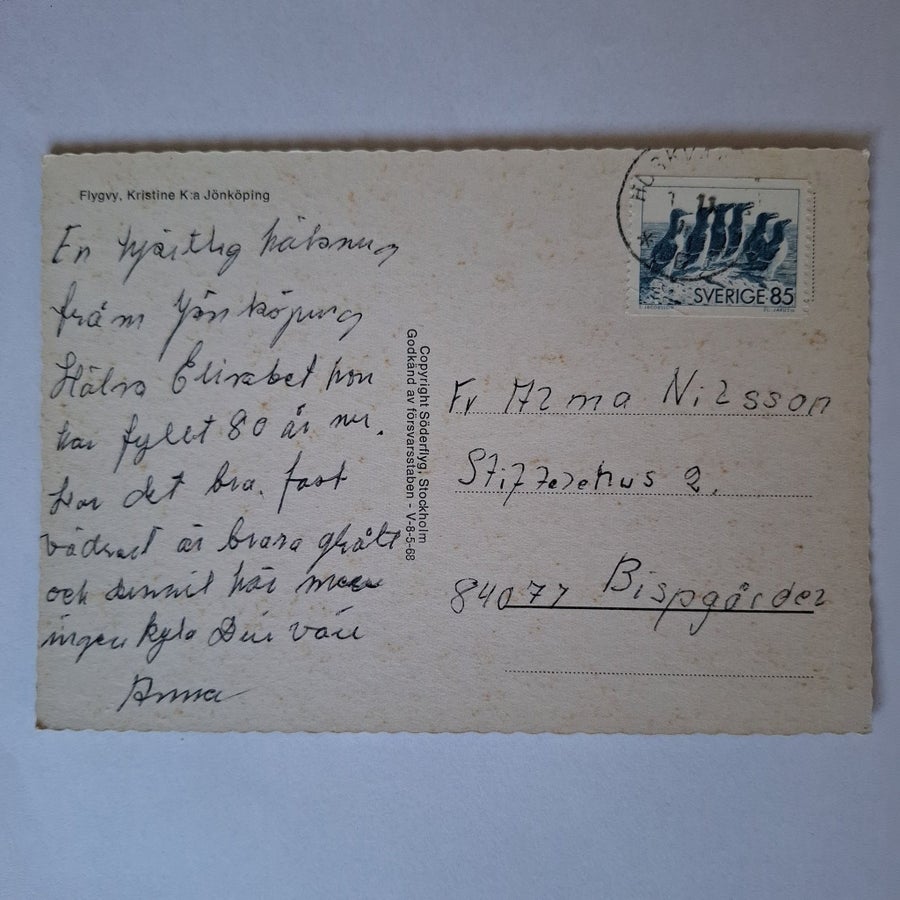 Flygvy, Kristine K:a Jönköping
En hjärtlig hälsning
från Jönköping
Hälsa Elisabet hon
har fyllt 80 år nu.
har det bra. fast
vädret är bara gråt
och här men
ingen kyla Din vän
Anna
Copyright Söderflyg, Stockholm
Godkänd av försvarsstaben - V-8-5-68
HUSKVARNA
SVERIGE 85
Fr Alma Nilsson
2.
84077 Bispgården